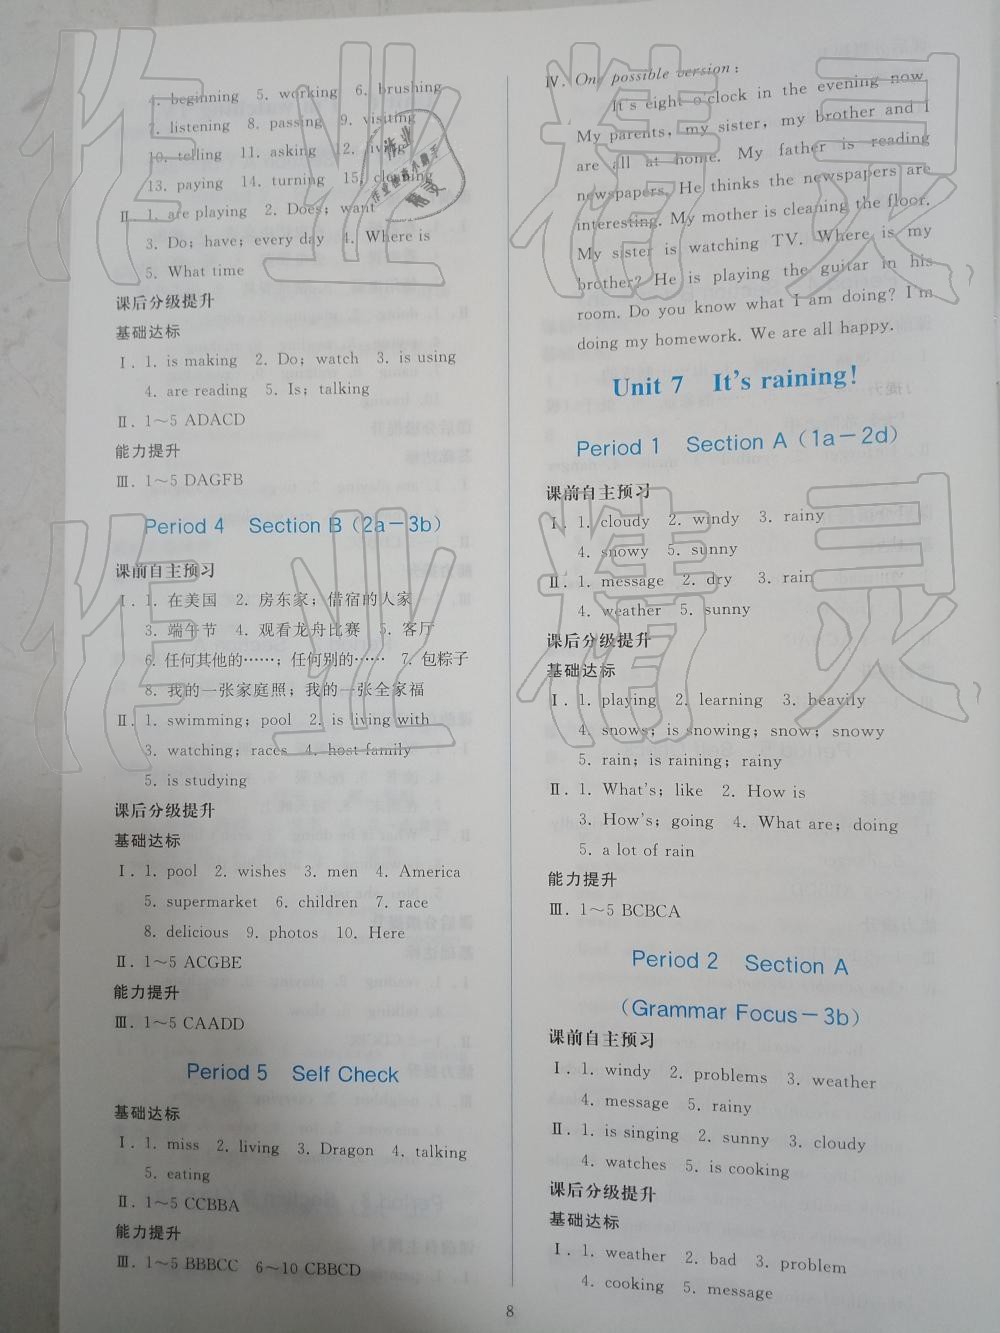 4. beginning 5. working 6. brushing
7. listening 8. passing 9. visiting
10. telling 11. asking 12. living
13. paying 14. turning 15. cleaning
Ⅱ. 1. are playing 2. Does; want
3. Do; have; every day 4. Where is
5. What time
课后分级提升
基础达标
Ⅰ. 1. is making 2. Do; watch 3. is using
4. are reading 5. Is; talking
Ⅱ. 1~5 ADACD
能力提升
Ⅲ. 1~5 DAGFB
Period 4 Section B (2a-3b)
课前自主预习
Ⅰ. 1. 在美国 2. 房东家; 借宿的人家
3. 端午节 4. 观看龙舟比赛 5. 客厅
6. 任何其他的……; 任何别的…… 7. 包粽子
8. 我的一张家庭照; 我的一张全家福
Ⅱ. 1. swimming; pool 2. is living with
3. watching; races 4. host family
5. is studying
课后分级提升
基础达标
Ⅰ. 1. pool 2. wishes 3. men 4. America
5. supermarket 6. children 7. race
8. delicious 9. photos 10. Here
Ⅱ. 1~5 ACGBE
能力提升
Ⅲ. 1~5 CAADD
Period 5 Self Check
基础达标
Ⅰ. 1. miss 2. living 3. Dragon 4. talking
5. eating
Ⅱ. 1~5 CCBBA
能力提升
Ⅲ. 1~5 BBBCC 6~10 CBBCD
Ⅳ. One possible version:
It's eight o'clock in the evening now.
My parents, my sister, my brother and I
are all at home. My father is reading
newspapers. He thinks the newspapers are
interesting. My mother is cleaning the floor.
My sister is watching TV. Where is my
brother? He is playing the guitar in his
room. Do you know what I am doing? I'm
doing my homework. We are all happy.
Unit 7 It's raining!
Period 1 Section A (1a-2d)
课前自主预习
Ⅰ. 1. cloudy 2. windy 3. rainy
4. snowy 5. sunny
Ⅱ. 1. message 2. dry 3. rain
4. weather 5. sunny
课后分级提升
基础达标
Ⅰ. 1. playing 2. learning 3. heavily
4. snows; is snowing; snow; snowy
5. rain; is raining; rainy
Ⅱ. 1. What's; like 2. How is
3. How's; going 4. What are; doing
5. a lot of rain
能力提升
Ⅲ. 1~5 BCBCA
Period 2 Section A
(Grammar Focus-3b)
课前自主预习
Ⅰ. 1. windy 2. problems 3. weather
4. message 5. rainy
Ⅱ. 1. is singing 2. sunny 3. cloudy
4. watches 5. is cooking
课后分级提升
基础达标
Ⅰ. 1. weather 2. bad 3. problem
4. cooking 5. message
8
作业精灵
作业精灵